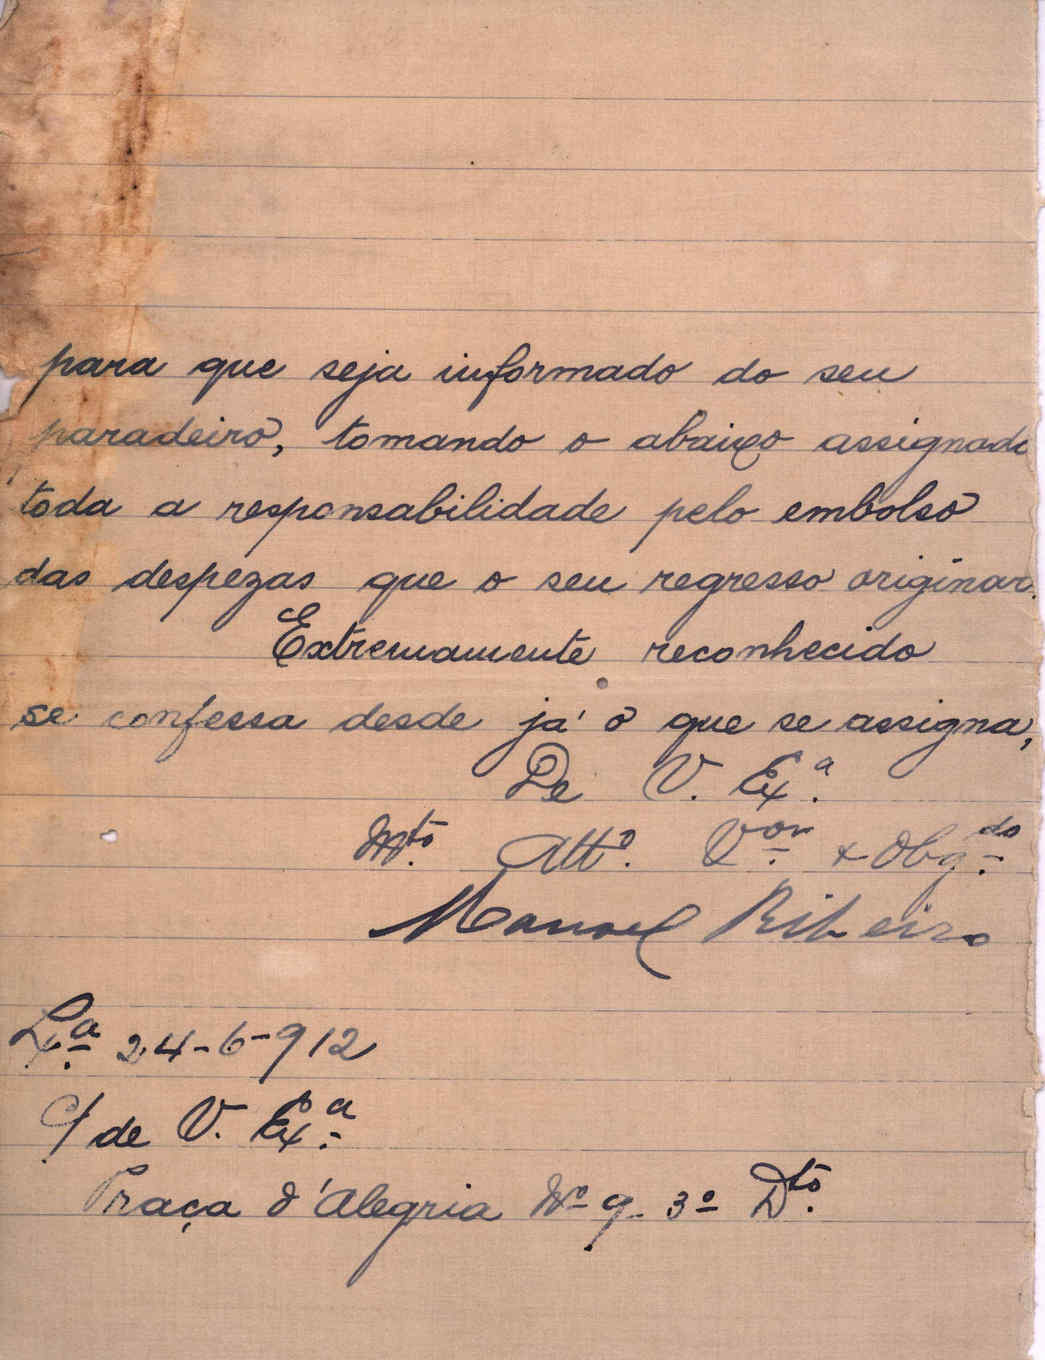 para que seja informado do seu
paradeiro, tomando o abaixo assignado
toda a responsabilidade pelo embolso
das despezas que o seu regresso originar.
Extremamente reconhecido
se confessa desde já o que se assigna,
De V. Ex.ª
M.to Att.o V.or & Obg.do
Manoel Ribeiro
Lx.ª 24-6-912
C/ de V. Ex.ª
Praça d'Alegria Nº 9 3º D.to